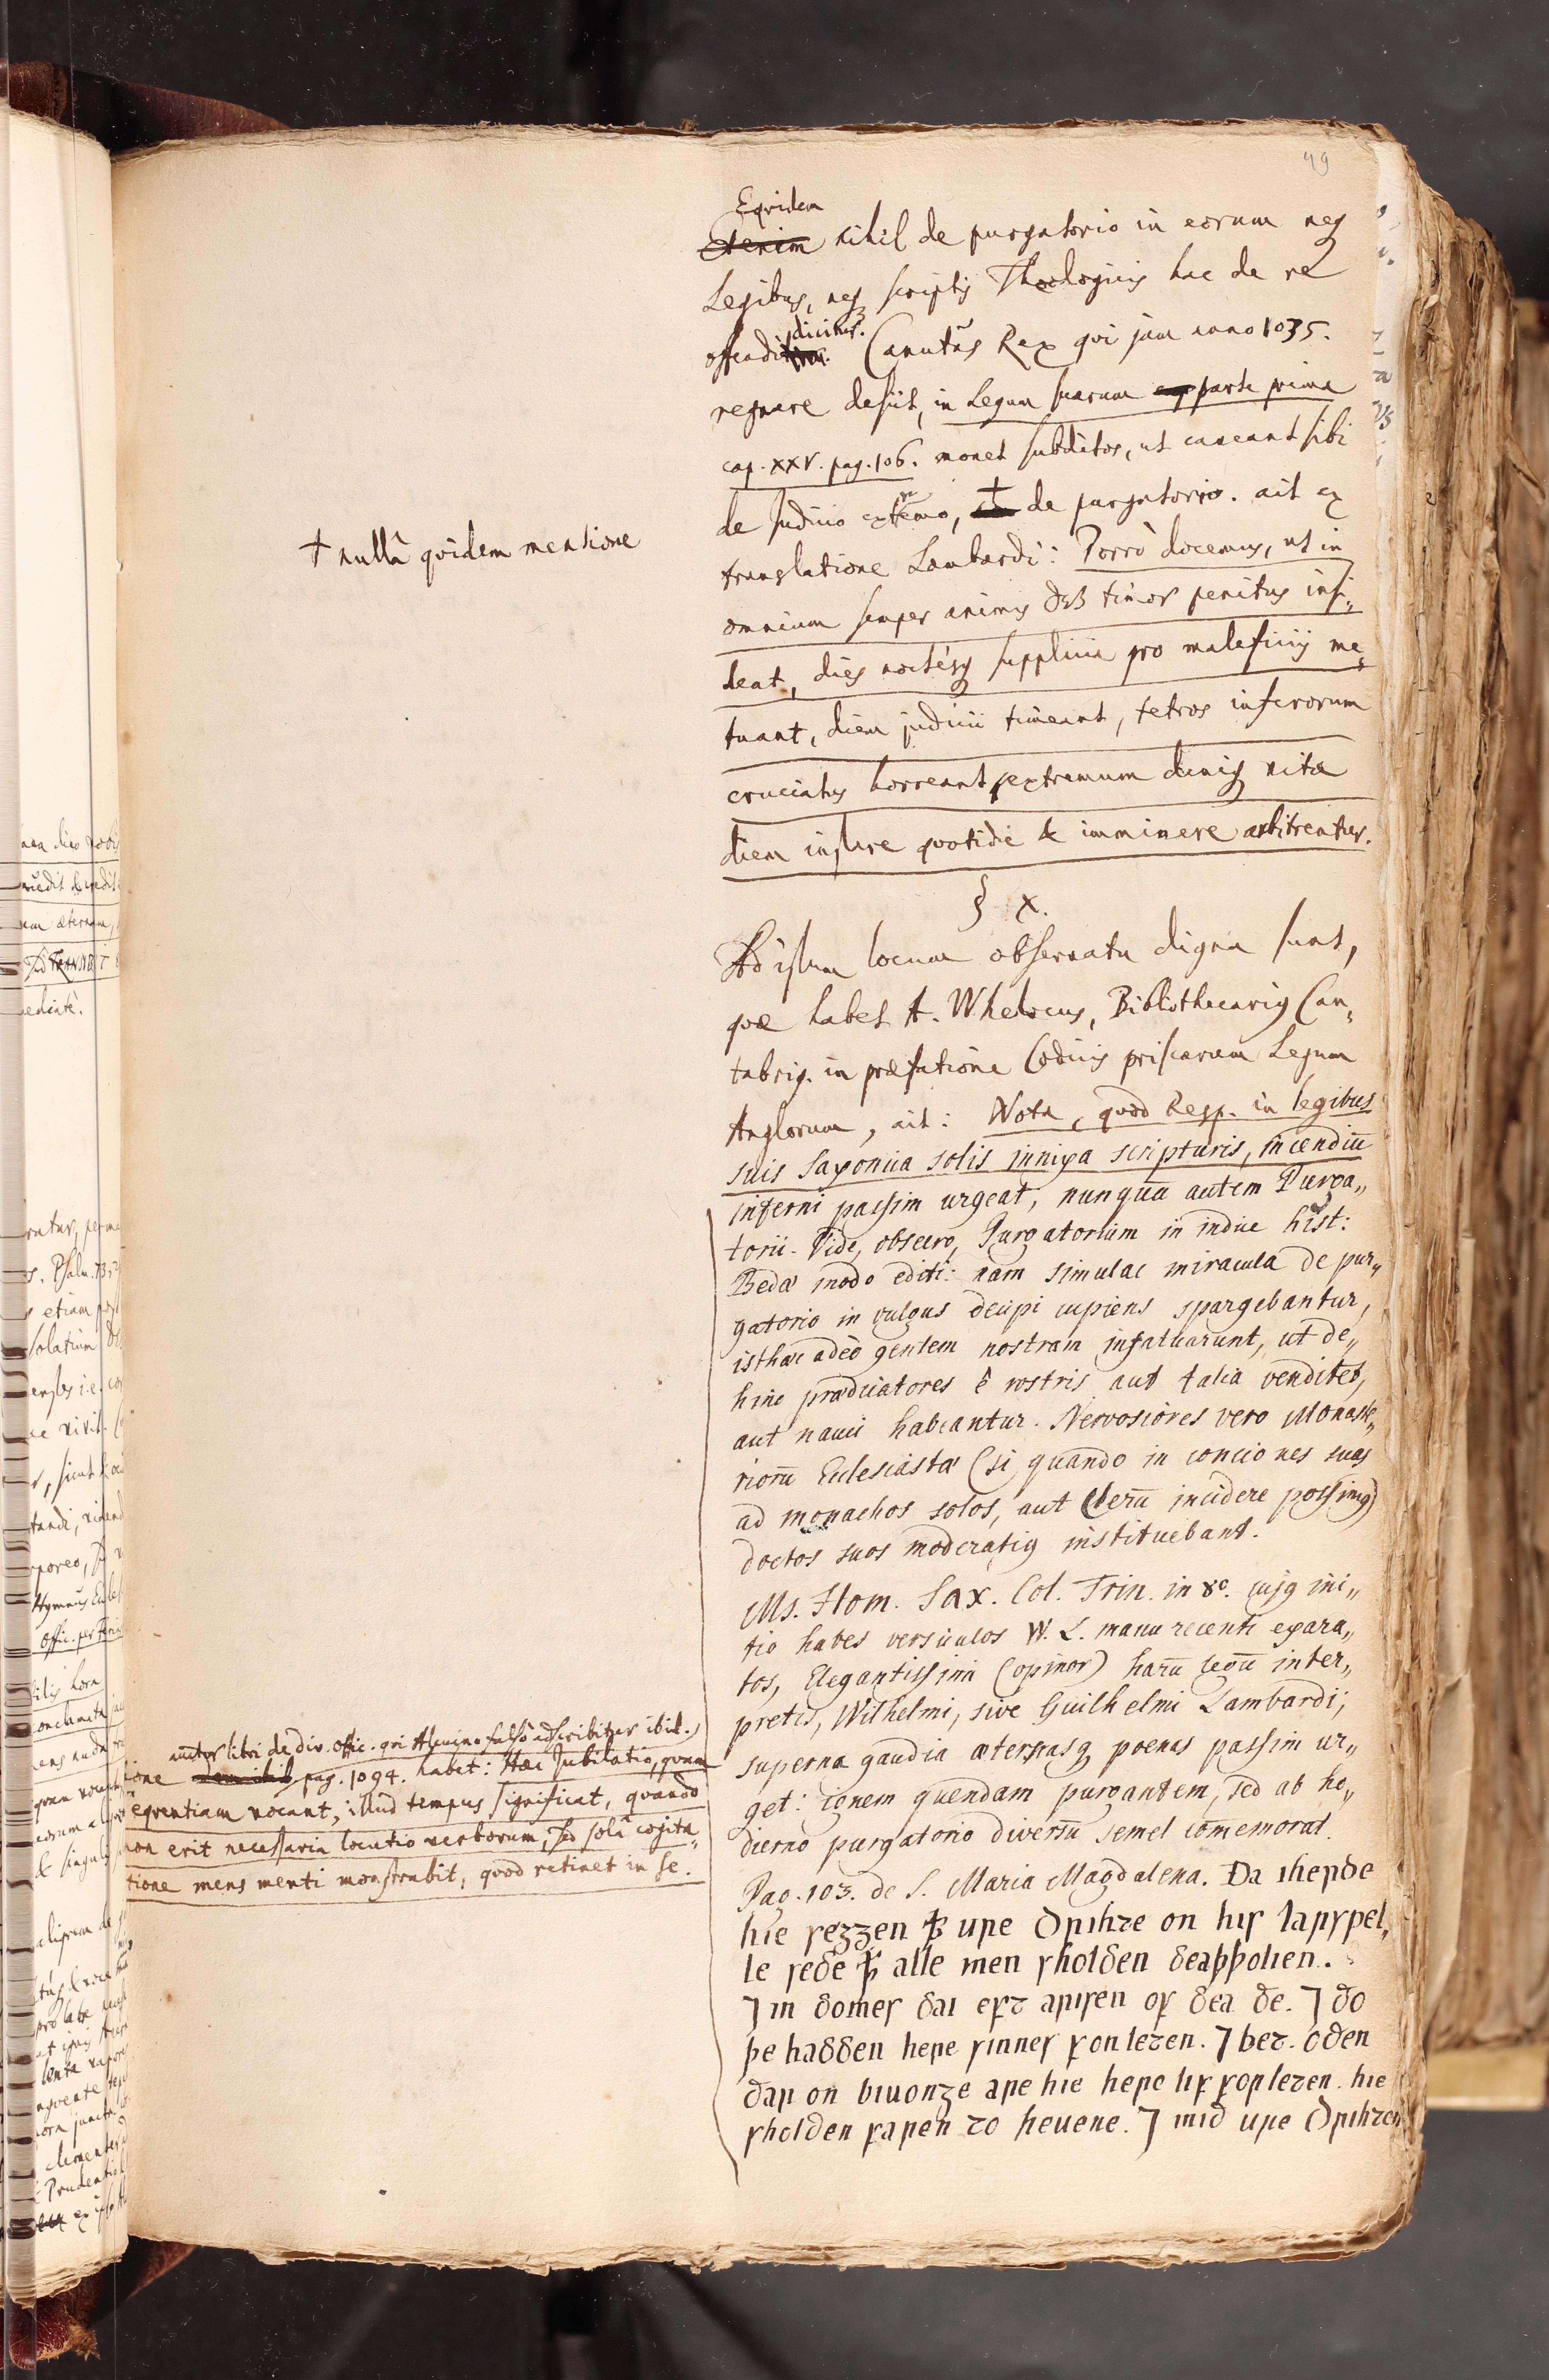 49
Eqvidem
Etenim nihil de purgatorio in eorum neq
Legibus, neq scriptis Theologicis hac de re
dicitur.
offendi Canutus Rex qvi jam anno 1035.
regnare desiit, in Legum suarum parte prima
cap. XXV. pag. 106. monet subditos, ut caveant sibi
de Judicio extremo, † de purgatorio. ait ex
† nullâ qvidem mentione
translatione Lambardi: Porrò docemus, ut in
omnium semper animis Dei timor penitus insi„
deat, dies noctésq supplicia pro maleficiis me„
tuant, diem judicii timeant, tetros inferorum
cruciatus horreant, extremum deniq vitæ
diem instare qvotidie & imminere arbitrentur.
§ X.
Ad istum locum observatu digna sunt,
qvæ habet A. Whelocus, Bibliothecarius Can„
tabrig. in præfatione Codicis priscarum Legum
Anglorum, ait: Nota, qvod Resp. in legibus
suis Saxonica solis innixa scripturis, incendiū
inferni passim urgeat, nunquā autem Purga„
torii. Vide, obsecro, Purgatorium in indice hist:
Bedæ modo editi: nam simulac miracula de pur„
gatorio in vulgus decipi cupiens spargebantur,
isthæc adeò gentem nostram infatuarunt, ut de„
hinc prædicatores è rostris aut talia venditet,
aut nauci habeantur. Nervosiores vero Monaste„
riorū Ecclesiastæ (si quando in conciones suas
ad monachos solos, aut Clerū incidere possimq)
doctos suos moderatiq instituebant.
Ms. Hom. Sax. Col. Trin. in 8o. cujq ini„
tio habes versiculos W. L. manu recenti exara„
tos, Elegantissimi (opinor) harū legū inter„
pretis, Wilhelmi, sive Guilhelmi Lambardi;
superna gaudia æternasq poenas passim ur„
get: ignem quendam purgantem, sed ab ho„
dierno purgatorio diversū semel com̄emorat.
Pag. 103. de S. Maria Magdalena. Ða iherde
hie seggen ꝥ ure Drihte on his larspel„
le sede ꝥ alle men sholden deaþþolien.
⁊ in domes dai eft arisen of dea ðe. ⁊ ðo
þe hadden here sinnes forleten. ⁊ bet. oðen
ðar on biuonge are hie here lif forleten. hie
sholden faren to heuene. ⁊ mid ure Drihten
autor libri de div. offic. qvi Alcuino falsò adscribitur ibid.
pag. 1094. habet: Hæc Jubilatio, qvam
eqventiam vocant, illud tempus significat, qvando
non erit necessaria locutio verborum, sed solâ cogita„
tione mens menti monstrabit, qvod retinet in se.